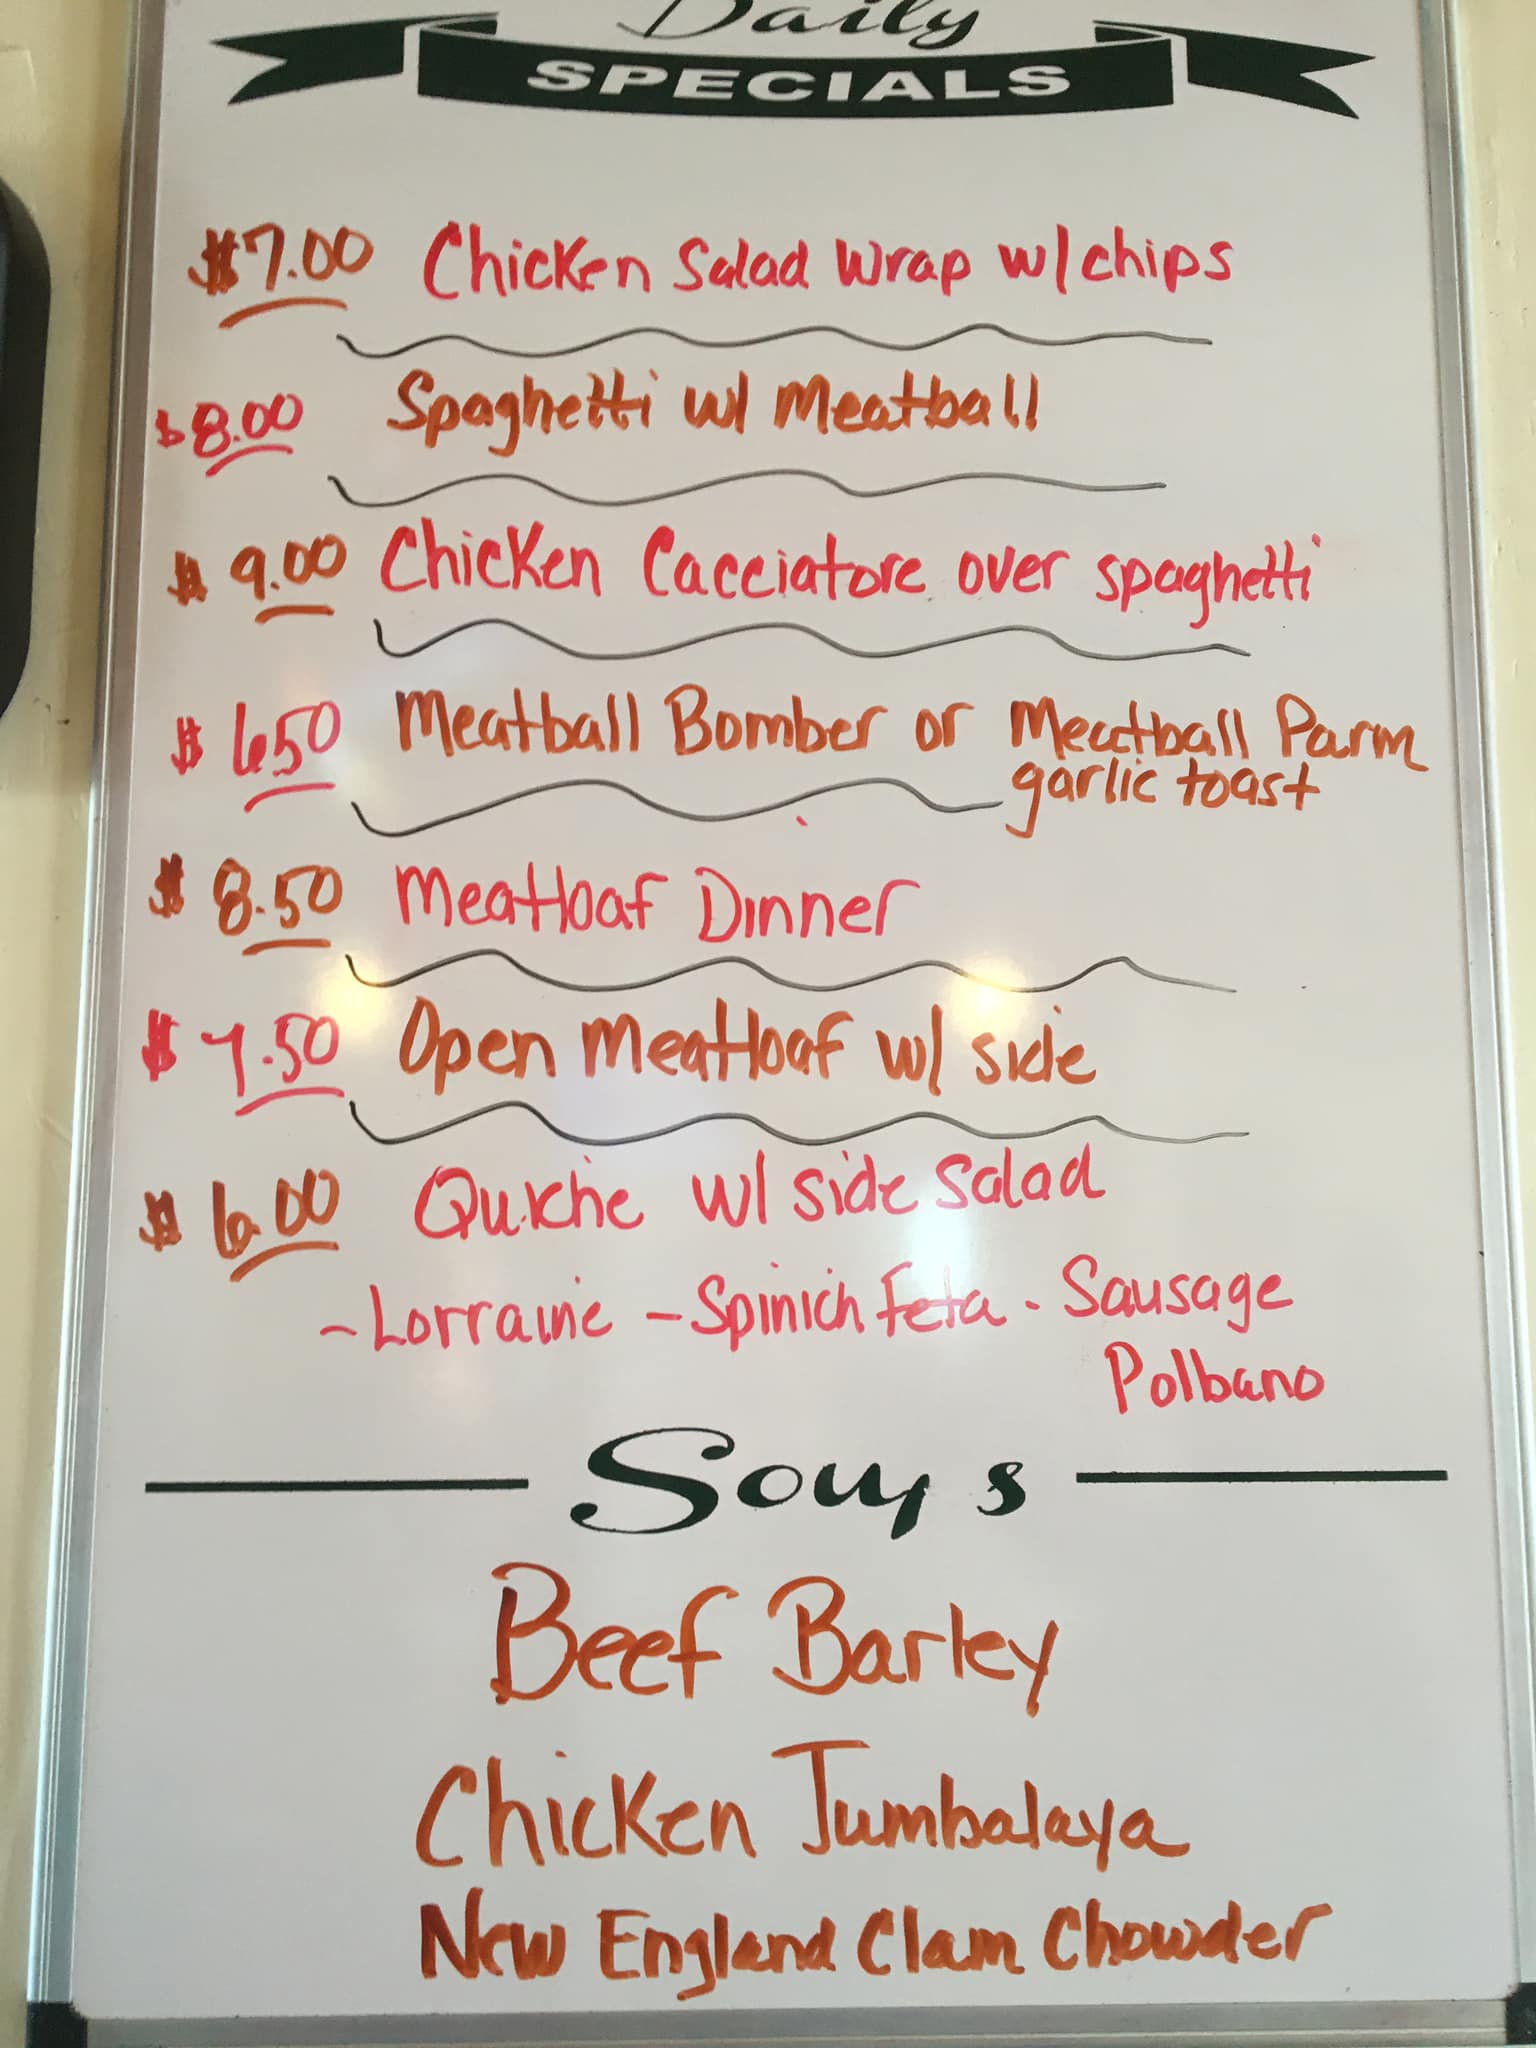 Daily
SPECIALS
$7.00 Chicken Salad Wrap w/chips
$8.00 Spaghetti w/ Meatball
$9.00 Chicken Cacciatore over spaghetti
$650 Meatball Bomber or Meatball Parm
garlic toast
$8.50 Meatloaf Dinner
$7.50 Open Meatloaf w/ side
$6.00 Quiche w/ side Salad
-Lorraine -Spinich Feta - Sausage
Polbano
Soups
Beef Barley
Chicken Jumbalaya
New England Clam Chowder